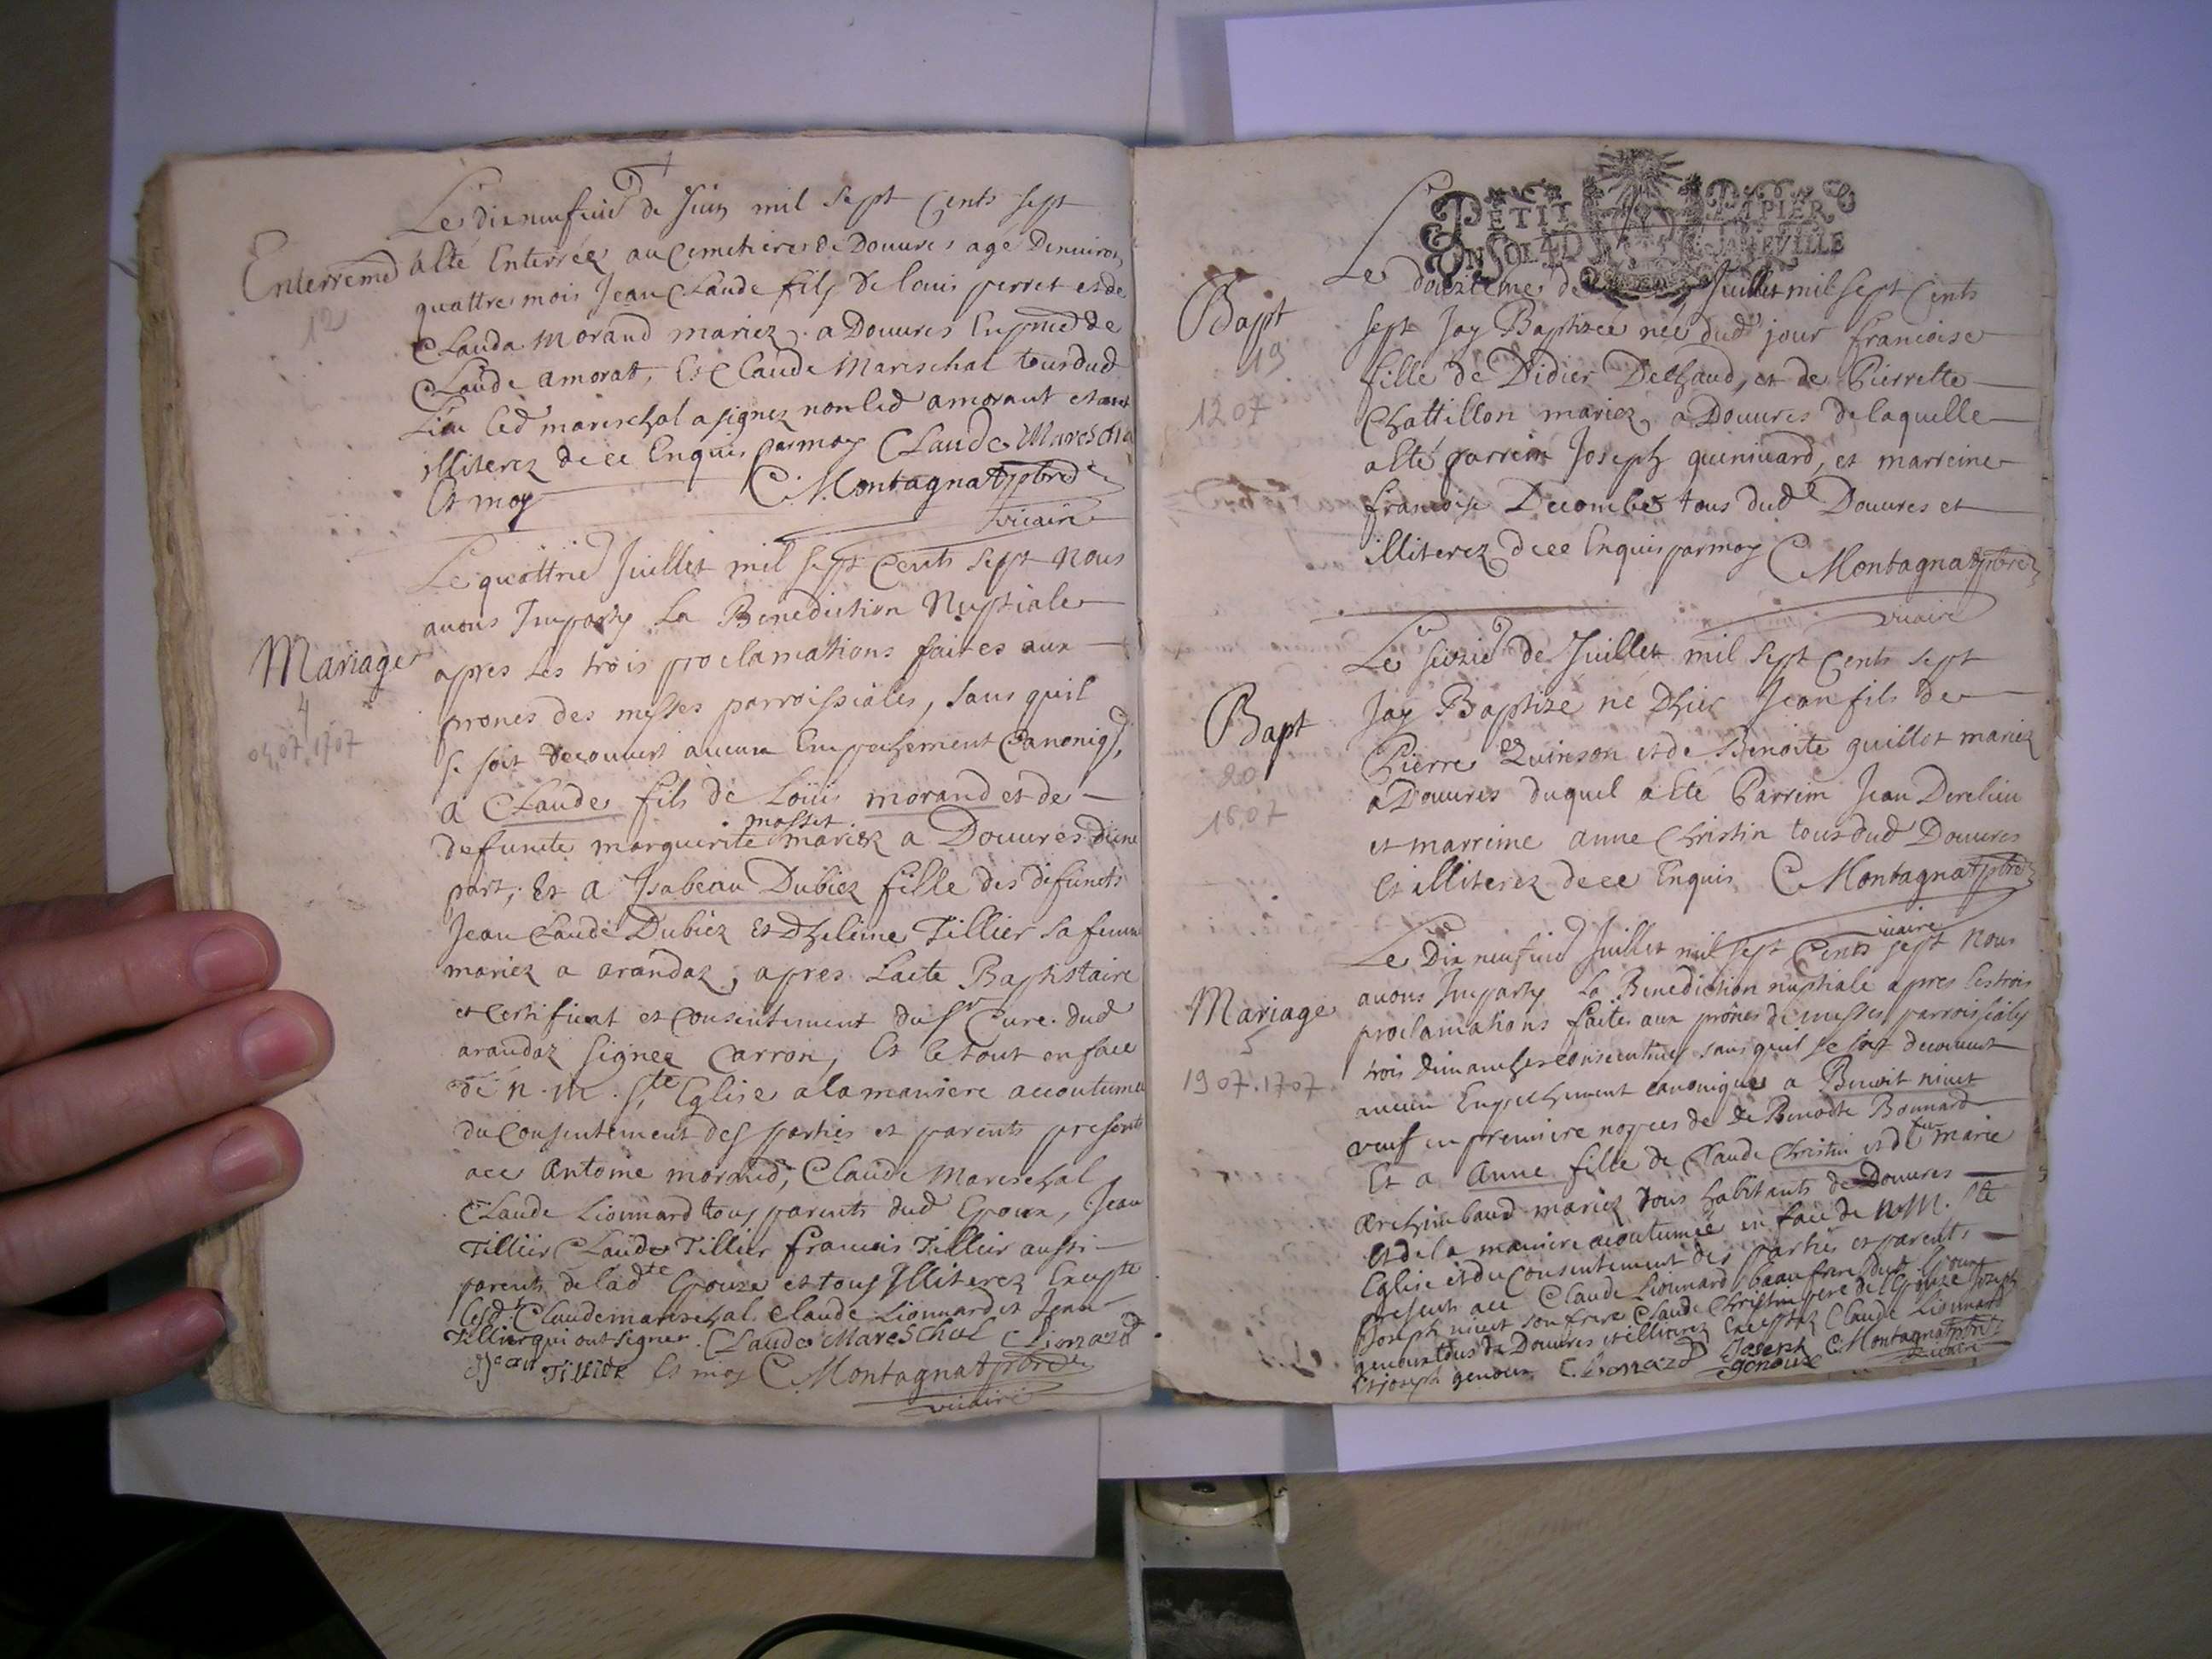 Le dixneufvie de Juin mil sept cents sept
Enterremed a esté Enterrée au Cemetiere de Douures agé Denuiron
12
quattre mois Jean Claude fils de louis perret et de
Clauda Morand mariez a Douures En pnce de
Claude amorat, Et Claude Mareschal tous dud
Lieu led mareschal a signez non led amoraut estant
illiterez de ce Enquis par moy Claude Mareschal
Et moy C. Montagnat pbre
vicaire
Le quattrie Juillet mil sept Cents sept nous
auons Imparty La Benediction Nuptiale
Mariage
4
04.07.1707
apres les trois proclamations faites aux
prones des messes parroissiales, sans quil
se soit decouuert aucun Empechement Canoniq,
a Claude fils de Loüis morand et de
defuncte marguerite masset mariez a Douures dune
part, Et a Isabeau Dubiez fille des defuncts
Jean Claude Dubiez Et Dheleine Tillier sa femme
mariez a arandaz, apres Lacte Baptistaire
et Certificat et Consentement du Sr Cure dud
arandaz signee Carron, Et le tout en face
de N. M. Ste Eglise a la maniere accoutumee
du Consentement des parties et parents presents
ace Antoine morand, Claude Mareschal
Claude Lionnard tous parents dud Epoux, Jean
Tillier Claude Tillier francois Tillier aussi
parents de lad te Epouze et tous Illiterez Excepte
lesd. Claude mareschal Claude Lionnard et Jean
Tillier qui ont signer. Claude Mareschal C Lionard
Jean Tillier Et moy C Montagnat pbre
vicaire
PETIT PAPIER
UN SOL 4D LA FEUILLE
Le douziemes de Juillet mil sept Cents
Bapt
19
1207
sept Jay Baptizeé neé dud jour francoise
fille de Didier Delhaud, et de Pierrette
Chattillon mariez, a Douures de laquelle
a esté parrein Joseph queniuard, et marreine
francoise Decombes tous dud Douures et
illiterez de ce Enquis par moy C Montagnat pbre
vicaire
Le seizie de Juillet mil sept Cents sept
Bapt
20
16.07
Jay Baptizé né Dhier Jean fils de
Pierre Quinson et de Benoite guillot mariez
a Douures duquel a Eté Parrein Jean Derelieu
et marreine anne Christin tous dud Douures
Et illiterez de ce Enquis C Montagnat pbre
vicaire
Le Dix neufvie Juillet mil sept Cents sept nous
Mariage
5
19 07.1707
auons Imparty La Benediction nuptiale apres les trois
proclamations faites aux prônes de messes parroissiales
trois dimanches consecutiues sans quil se soit decouuert
aucun Empechement canonique a Benoit niuet
veuf en premiere nopces de de Benoite Bonnard
Et a Anne fille de Claude Christin et de fue marie
Archimbaud mariez Tous habitants de Douures
Et de la maniere acoutumeé en face de N. M. Ste
Eglise et du Consentement des parties et parents
presents ace Claude Lionnard beaufrere dud Epoux
Joseph niuet son frere Claude Christin pere de lEpouze Joseph
genoux tous de Douures et illiterez Exceptez Claude Lionnard
Et joseph genoux C Lionard Joseph genoux C. Montagnat pbre
vicaire